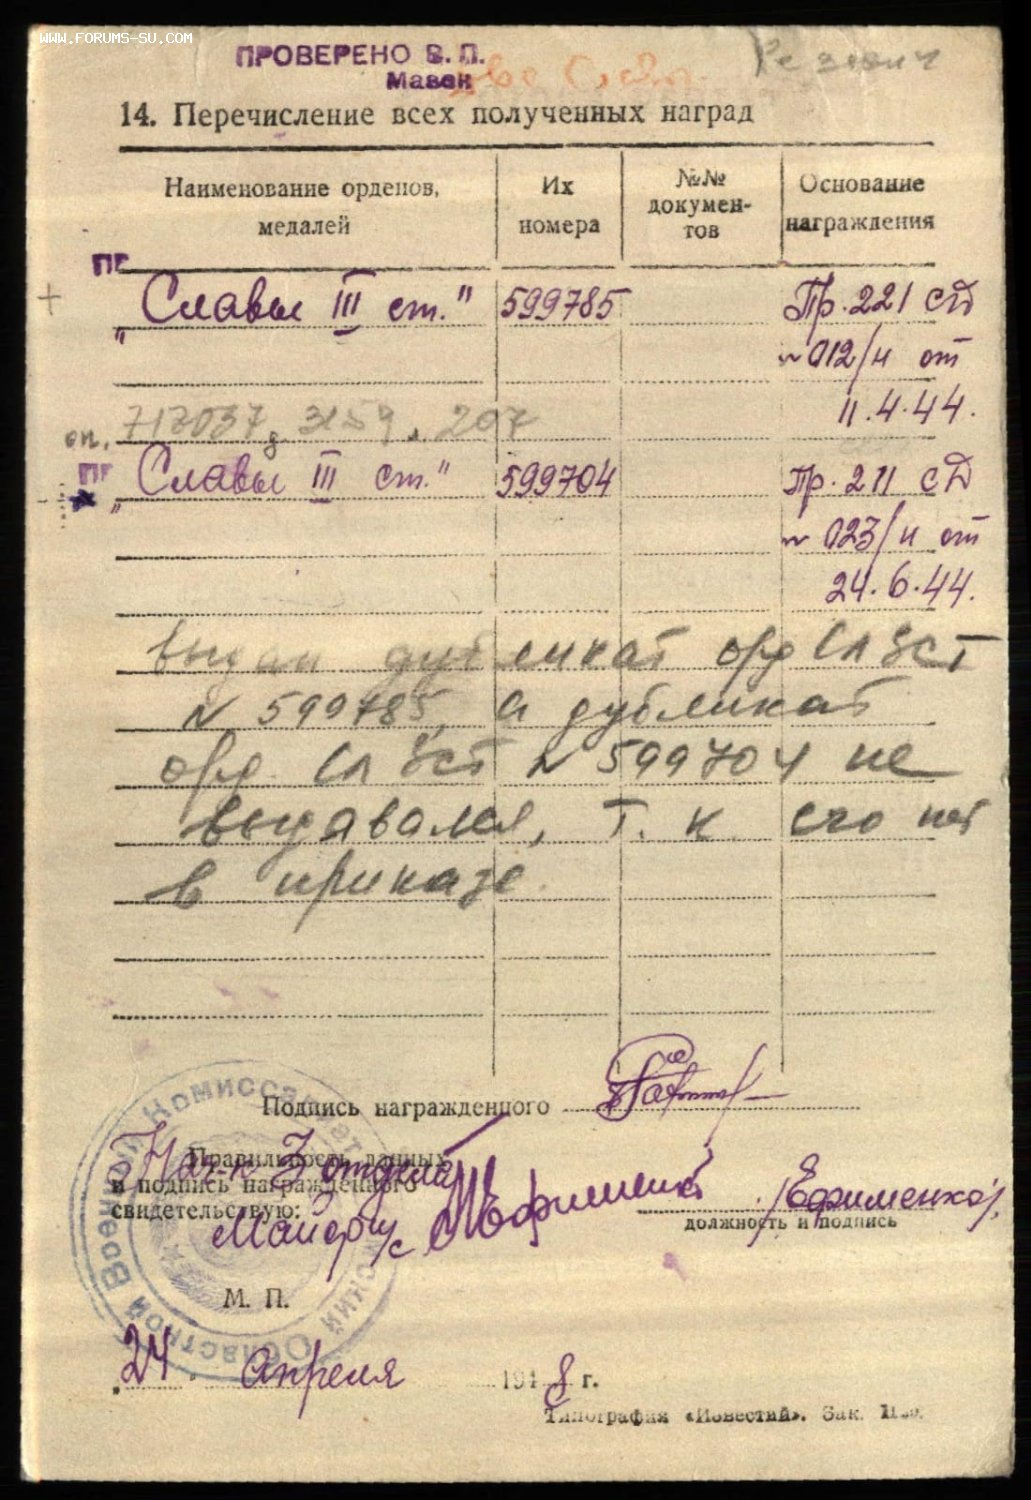 WWW.FORUMS-SU.COM
ПРОВЕРЕНО В. П.
14. Перечисление всех полученных наград
Наименование орденов, медалей
Их номера
№№ докумен-тов
Основание награждения
ПГ
"Славы III ст." 599785 Пр. 221 сд
№ 012/н от
11.4.44.
оп. 717037 д. 3159 л. 207
ПГ
"Славы III ст." 599704 Пр. 211 сд
№ 023/н от
24.6.44.
выдан дубликат орд Сл 3ст
№ 599785, а дубликат
орд. Сл 3ст № 599704 не
выдавался, т. к его нет
в приказе.
Подпись награжденного
Правильность данных
и подпись награжденного
свидетельствую:
Нач-к 3 отдела
Майор И/с
/Ефименко/.
должность и подпись
Областной Военный Комиссариат
М. П.
"24" Апреля 1948 г.
Типография «Известий». Зак.